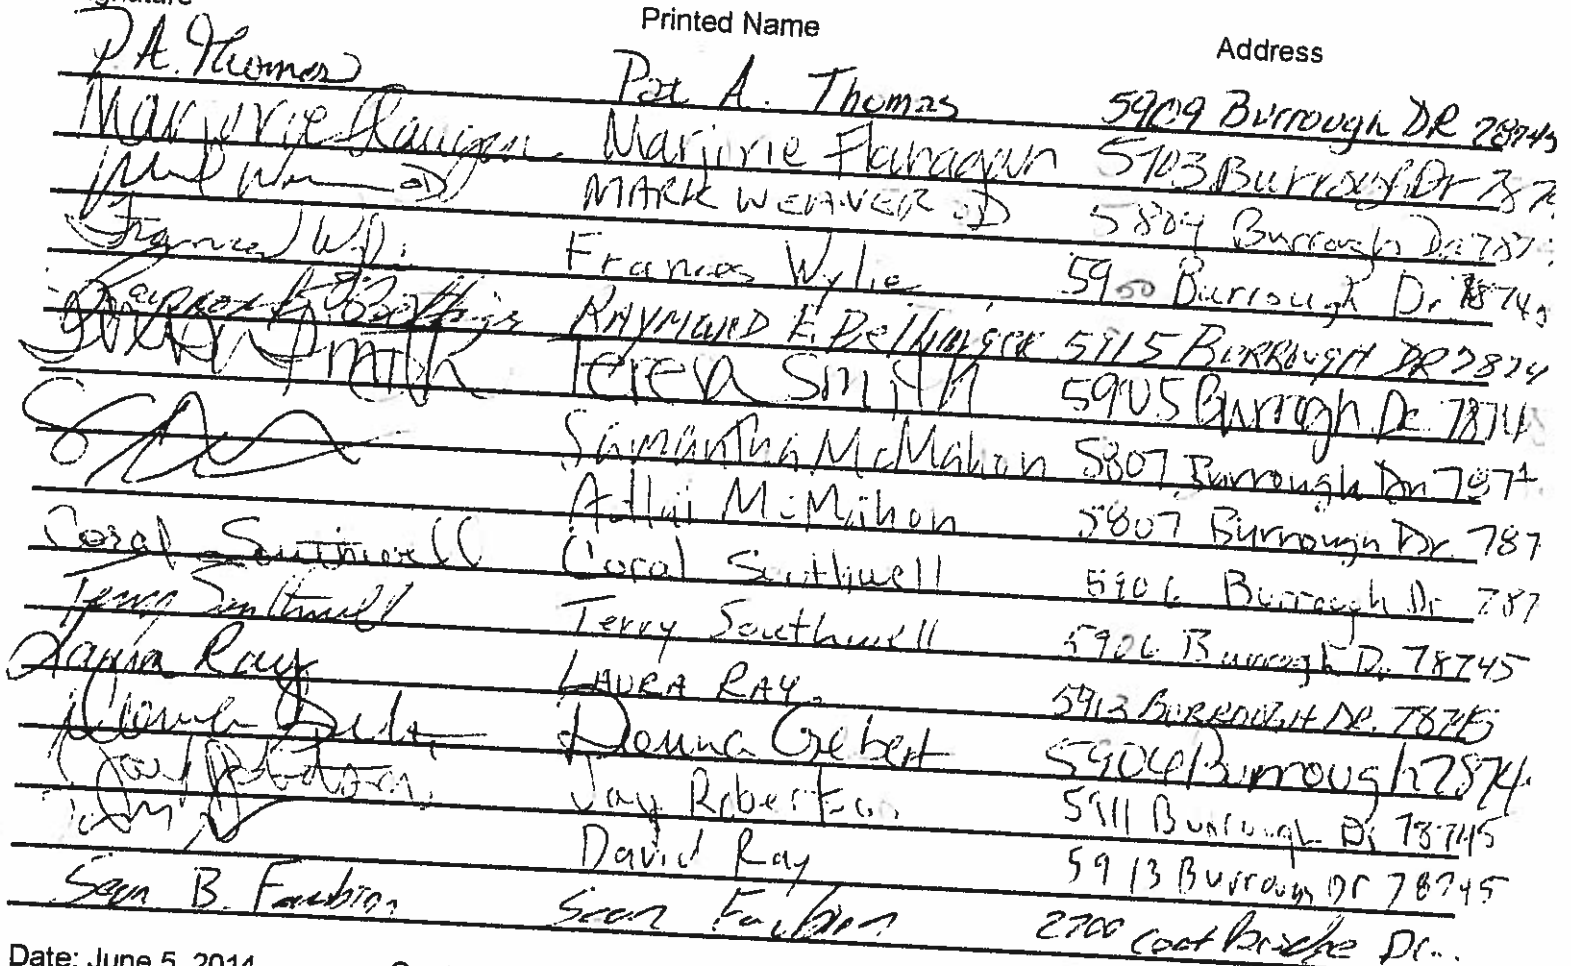 Printed Name Address
P.A. Thomas Pat A. Thomas 5909 Burrough DR 78745
Marjorie Flanagan Marjorie Flanagan 5703 Burrough Dr 787
MARK WEAVER 5804 Burrough Dr 787
Frances Wylie 5900 Burrough Dr. 78745
RAYMOND E. Dellinger 5915 BURROUGH DR 7874
Smith Teresa Smith 5905 Burrogh Dr 7874
Samantha McMahon 5807 Burrough Dr 787
Adlai McMahon 5807 Burrough Dr. 787
Coral Southwell Coral Southwell 5906 Burrough Dr 787
Terry Southwell Terry Southwell 5906 Burrough Dr 78745
Laura Ray LAURA RAY 5913 BURROUGH DR. 78745
Donna Gebert 5904 Burrough 7874
Jay Robertson Jay Robertson 5911 Burrough Dr 78745
David Ray 5913 Burrough Dr 78745
Sean B. Faubion Sean Faubion 2700 Dr.
Date: June 5, 2014